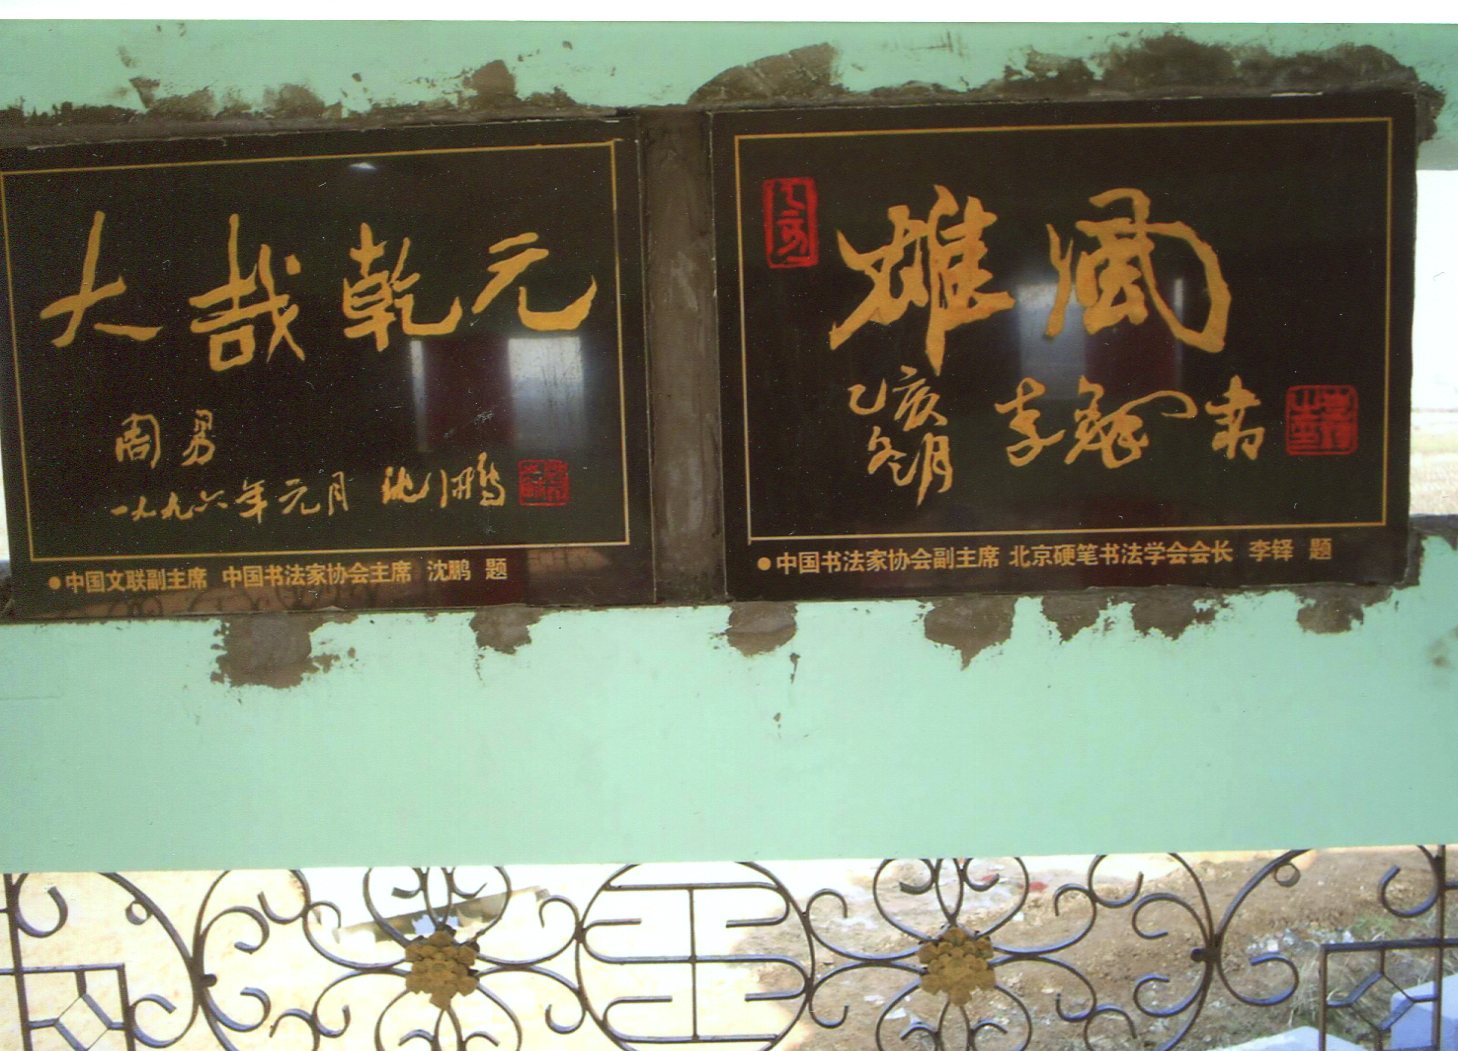 大哉乾元
周易
一九九六年元月 沈鹏
●中国文联副主席 中国书法家协会主席 沈鹏 题
雄风
乙亥
冬月
李铎书
●中国书法家协会副主席 北京硬笔书法学会会长 李铎 题